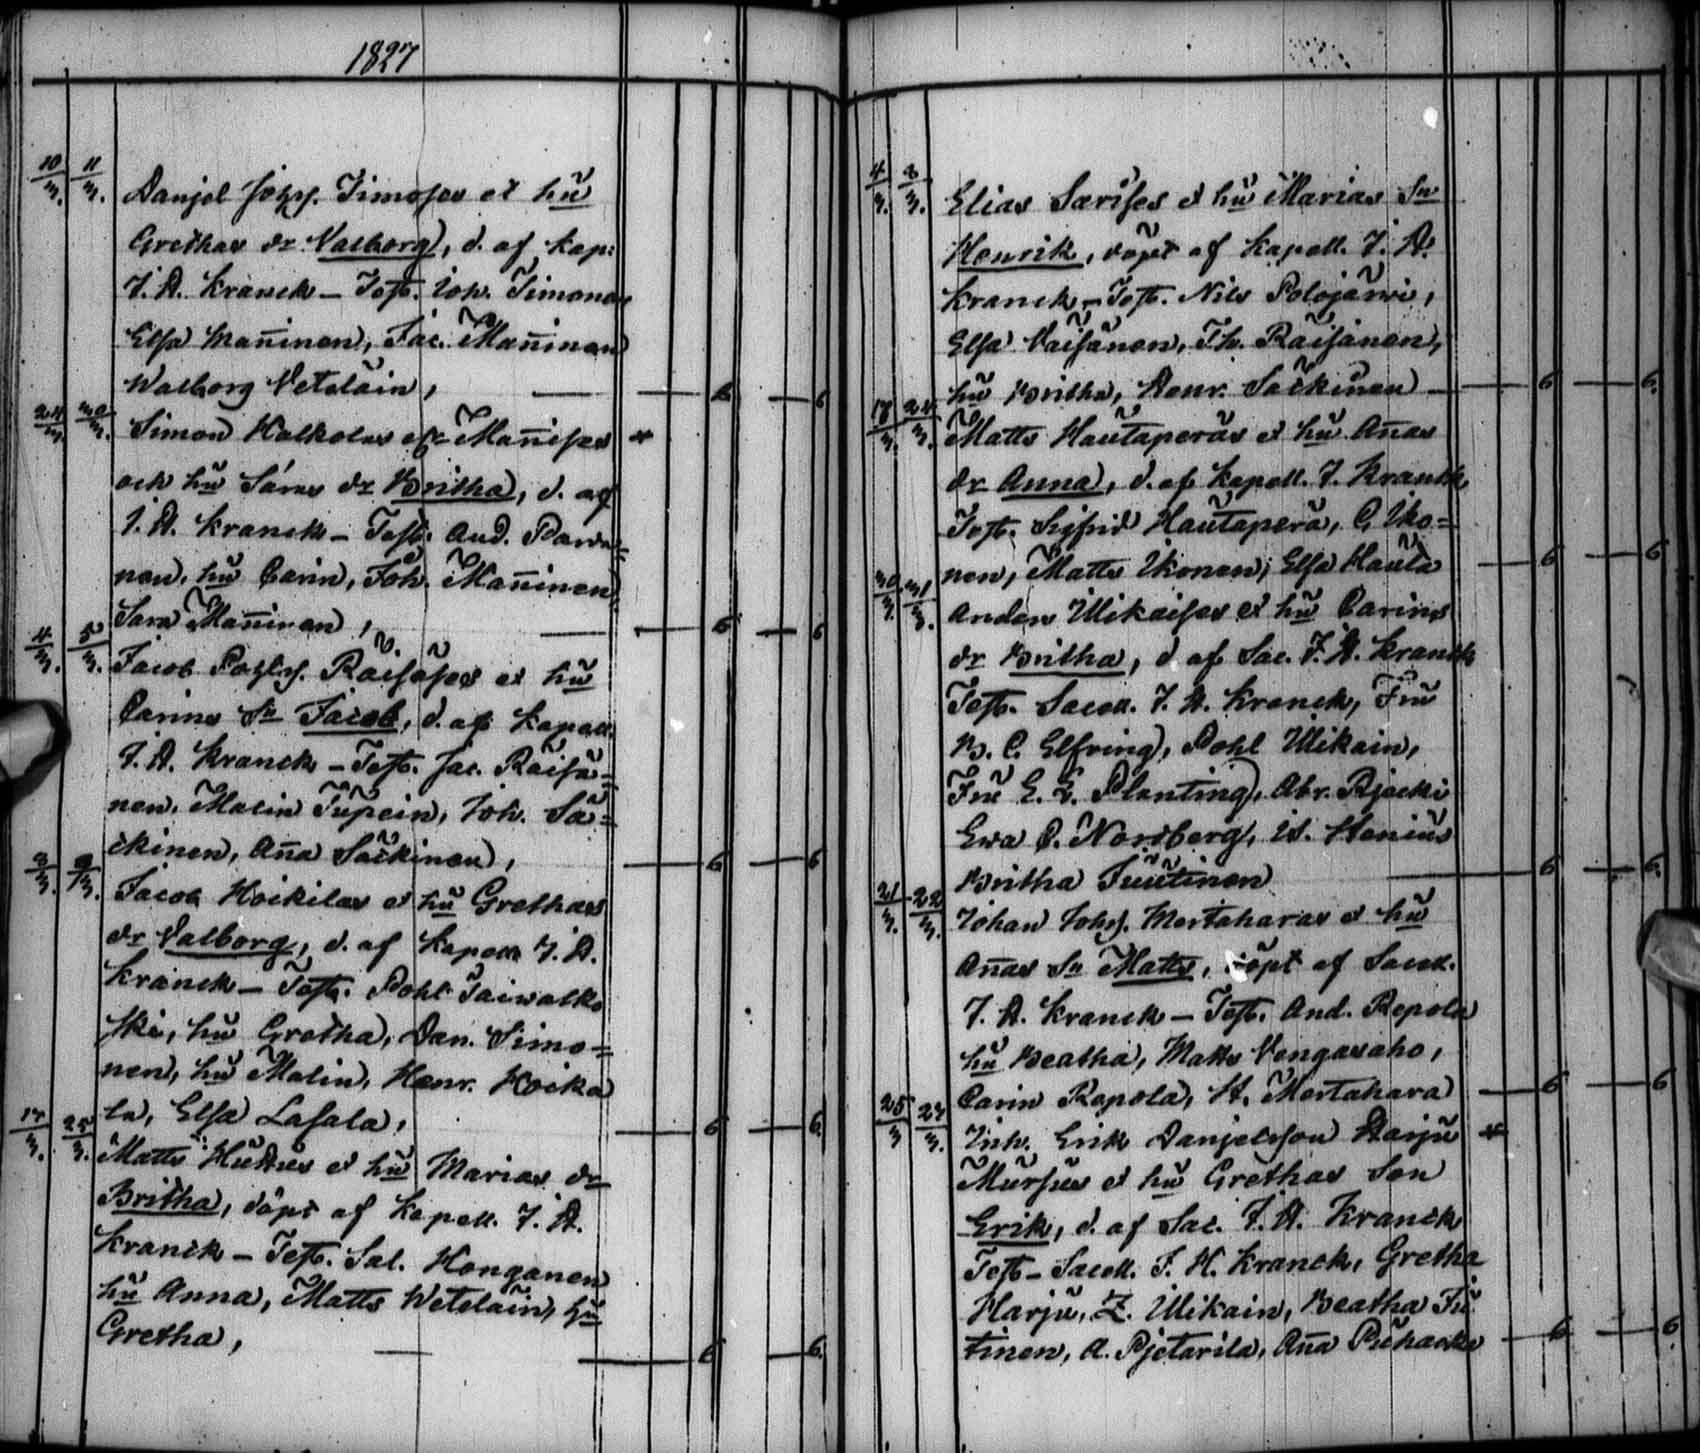 1827
10/3. 11/3. Danjel Johs. Simoses et hu
Grethas dr Valborg, d. af kap:
J. H. Kranck – Test. Joh. Simonen
Elsa Mañinen, Jac. Mañinen
Walborg Veteläin, 6 6
24/3. 30/3. Simon Halkolas Mañises
och hu Saras dr Britha, d. af
J. H. Kranck – Test. And.
nen, hu Carin, Joh. Mañinen
Sara Mañinen, 6 6
4/3. 5/3. Jacob Pohls. Räisäses et hu
Carins Sn Jacob, d. af Kapell.
J. H. Kranck – Test. Jac. Räisä=
nen, Malin Tupein, Joh. Sä=
ckinen, Aña Säckinen, 6 6
3/3. 9/3. Jacob Hoikilas et hu Grethas
dr Valborg, d. af Kapell J. H.
Kranck – Test. Pohl Taiwalko
ski, hu Gretha, Dan. Simo=
nen, hu Malin, Henr. Hoika
la, Elsa Lasala, 6 6
17/3. 25/3. Matts et hu Marias dr
Britha, döpt af Kapell. J. H.
Kranck – Test. Sal. Honganen
hu Anna, Matts Wetelain, hu
Gretha, 6 6
Elias Særises et hu Marias Sn
Henrik, döpt af Kapell. J. H.
Kranck – Test. Nils Polojärvi,
Elsa Vaisänen, Th. Räisänen,
hu Britha, Henr. Säckinen 6 6
Matts Hautaperäs et hu Añas
dr Anna, d. af Kapell. J. Kranck
Test. Sigfrid Hautaperä, C. Iko=
nen, Matts Ikonen, Elsa Hauta 6 6
30/3. 31/3. Anders Ulikaises et hu Carins
dr Britha, d af Sac. J. H. Kranck
Test. Sacell. J. H. Kranck, Fru
B. C. Elfving, Pohl Ulikain,
Fru E. E. Planting, Abr. Rjæcki
Ewa C. Nordberg, Is. Henius
Britha Juutinen 6 6
21/3. 22/3. Johan Johs. Mertaharas et hu
Añas Sn Matts, döpt af Sacell.
J. H. Kranck – Test. And. Repola
hu Beatha, Matts Vengasaho,
Carin Repola, H. Mertahara 6 6
25/3 27/3. Inh. Erik Danjelsson Harju
Mursus et hu Grethas Son
Erik, d. af Sac. J. H. Kranck
Test – Sacell. J. H. Kranck, Gretha
Harju, Z. Ulikain, Beatha Ju
tinen, A. Pjetarila, Aña 6 6